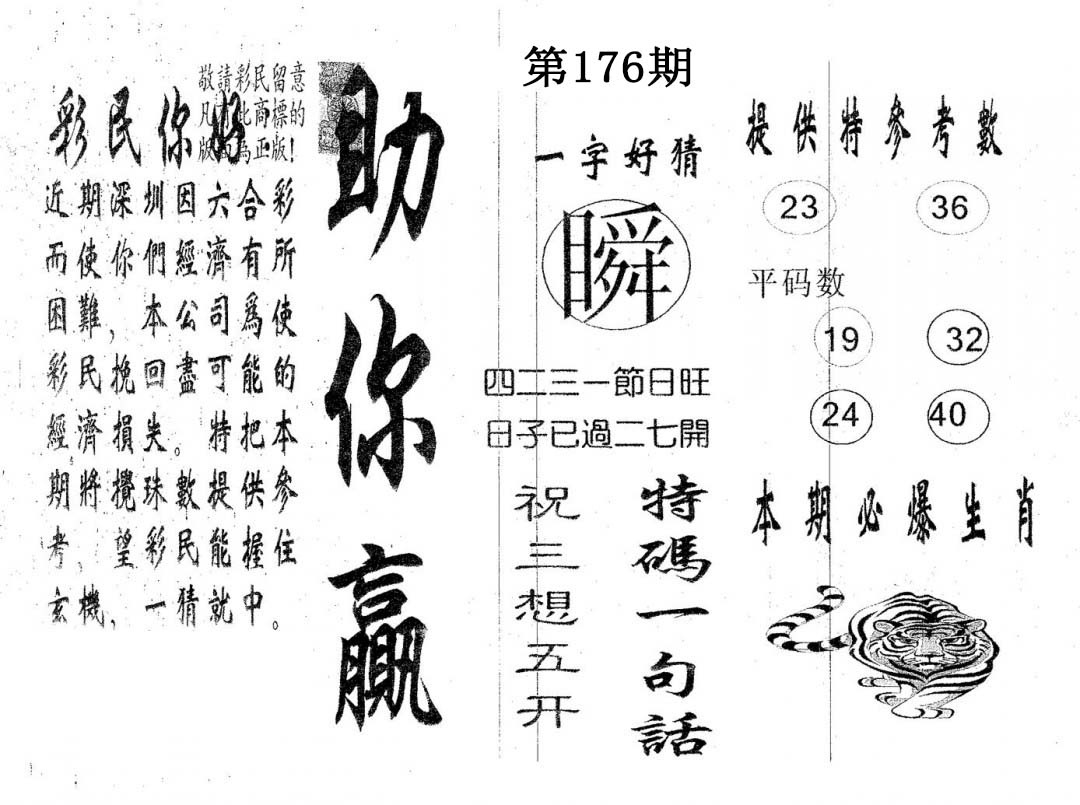 第176期
敬請彩民留意
凡此商標的
版為正版!
彩民你好
近期深圳因六合彩
而使你們經濟有所
困難，本公司爲使
彩民挽回盡可能的
經濟損失。特把本
期將攪珠數提供參
考，望彩民能握住
玄機，一猜就中。
助你贏
一字好猜
瞬
四二三一節日旺
日子已過二七開
特碼一句話
祝三想五开
提供特參考數
23 36
平码数
19 32
24 40
本期必爆生肖